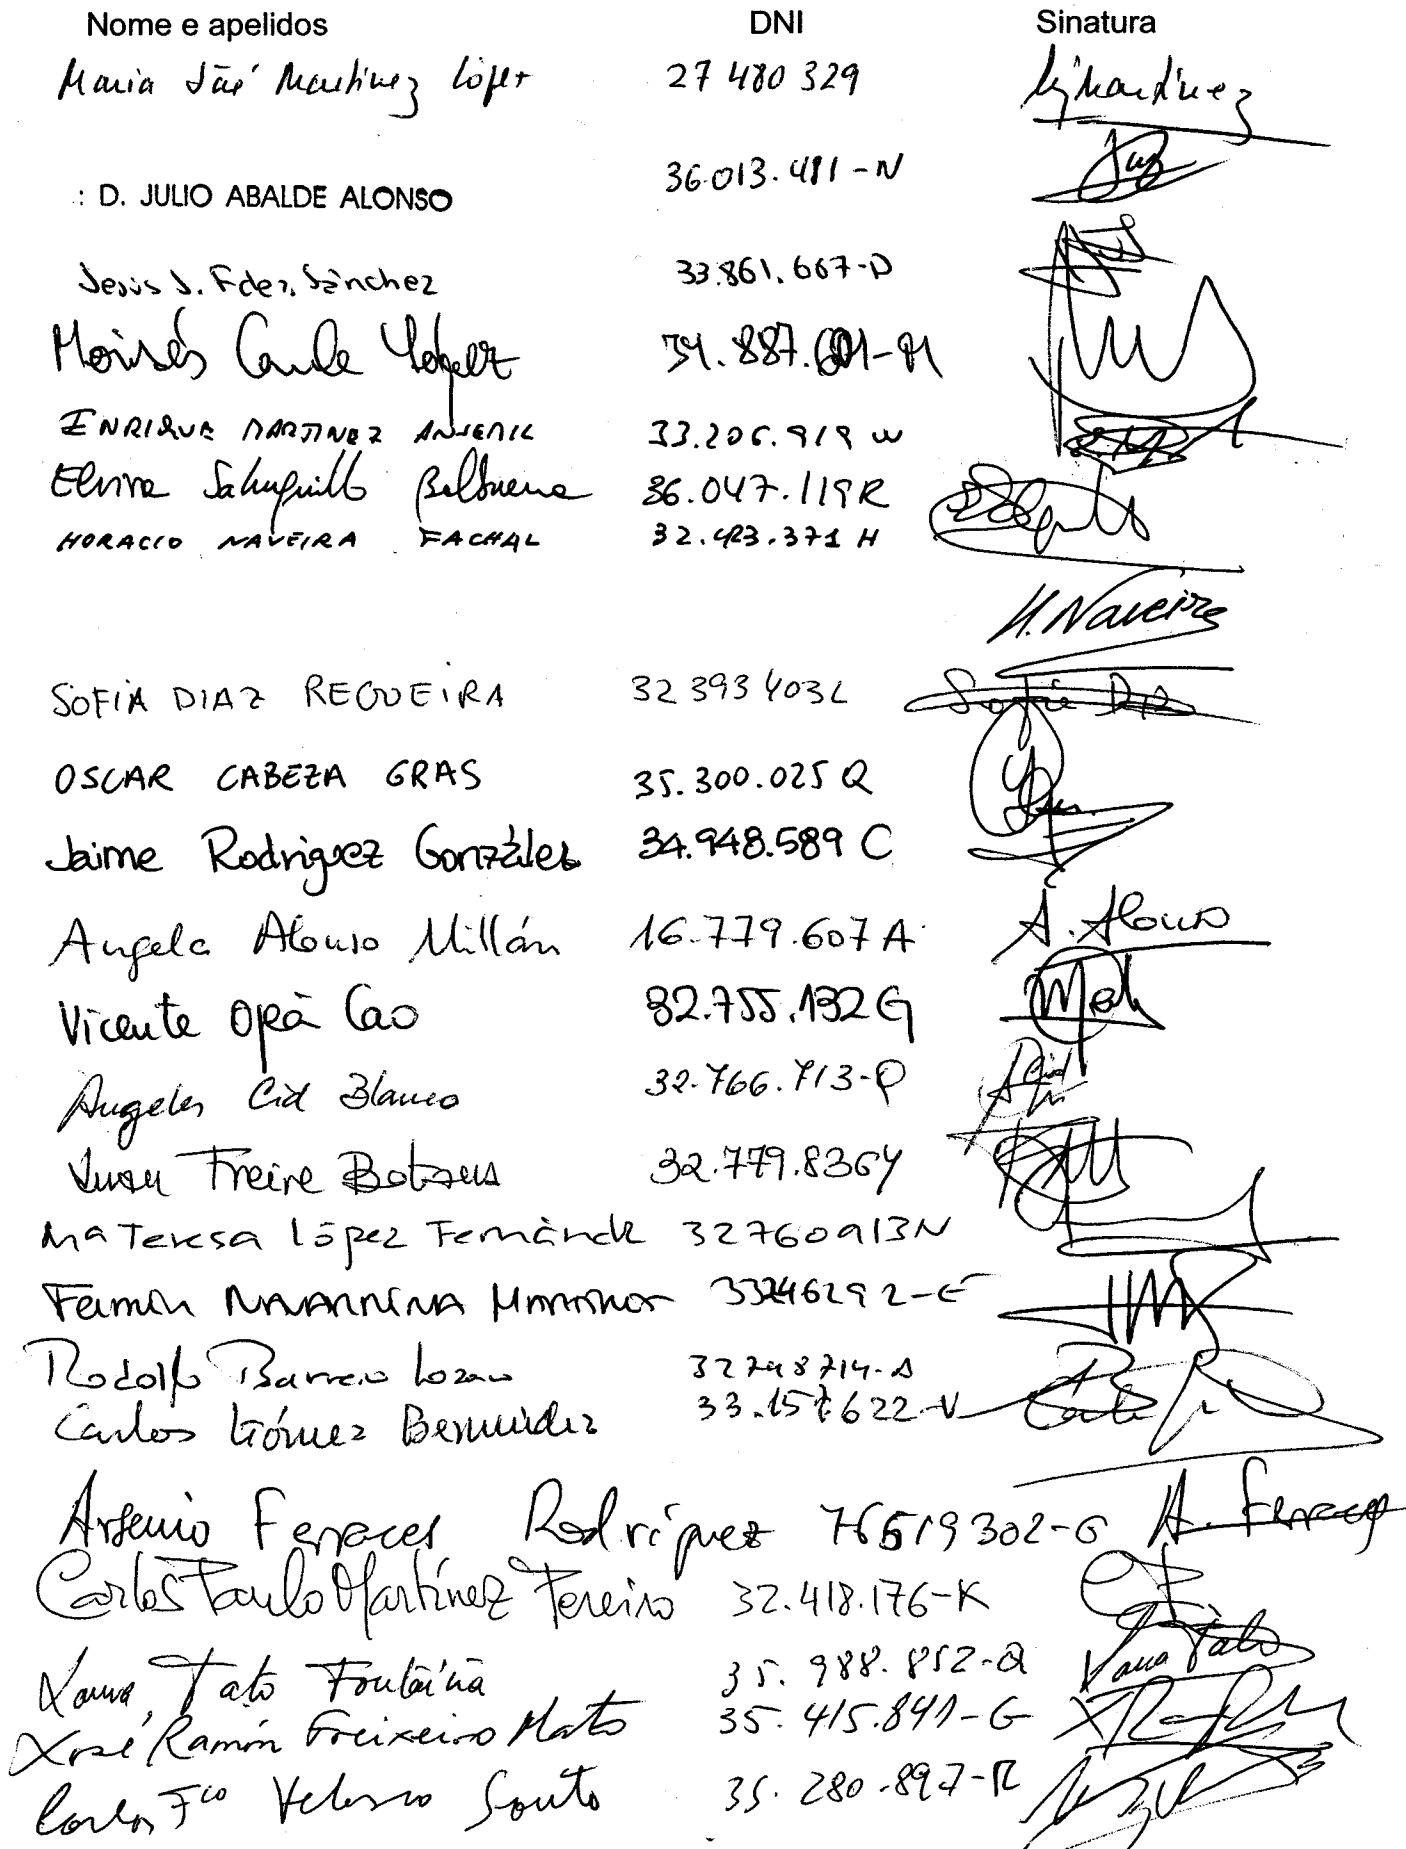 Nome e apelidos DNI Sinatura
Maria José Martinez López 27 480 329 Mj Martínez
: D. JULIO ABALDE ALONSO 36.013.481-N
Jesús J. Fdez. Sánchez 33.861.667-D
Moisés López 34.887.
ENRIQUE MARTINEZ 33.206.919 W
Elvira Sahuquillo Balbuena 36.047.119R
HORACIO NAVEIRA FACHAL 32.423.371 H
H. Naveira
SOFIA DIAZ REGUEIRA 32 393 403L Sofía
OSCAR CABEZA GRAS 35.300.025 Q
Jaime Rodriguez González 34.948.589 C
Angela Alonso Millán 16.779.607 A A. Alonso
Vicente Cao 32.755.132G
Angeles Cid Blanco 32.766.713-Q
Juan Freire Botana 32.779.836Y
Mª Teresa López Fernández 32760913N
Fermín 33246292-E
Rodolfo Barreiro Lozano 32748714-A
Carlos Gómez Bermúdez 33.157622-V
Arsenio Ferraces Rodríguez 76519302-G A. Ferraces
Carlos Paulo Martínez Pereiro 32.418.176-K
Laura Tato Fontaíña 35.988.852-Q Laura Tato
Xosé Ramón Freixeiro Mato 35.415.841-G
Carlos Fco Velasco Souto 35.280.897-R